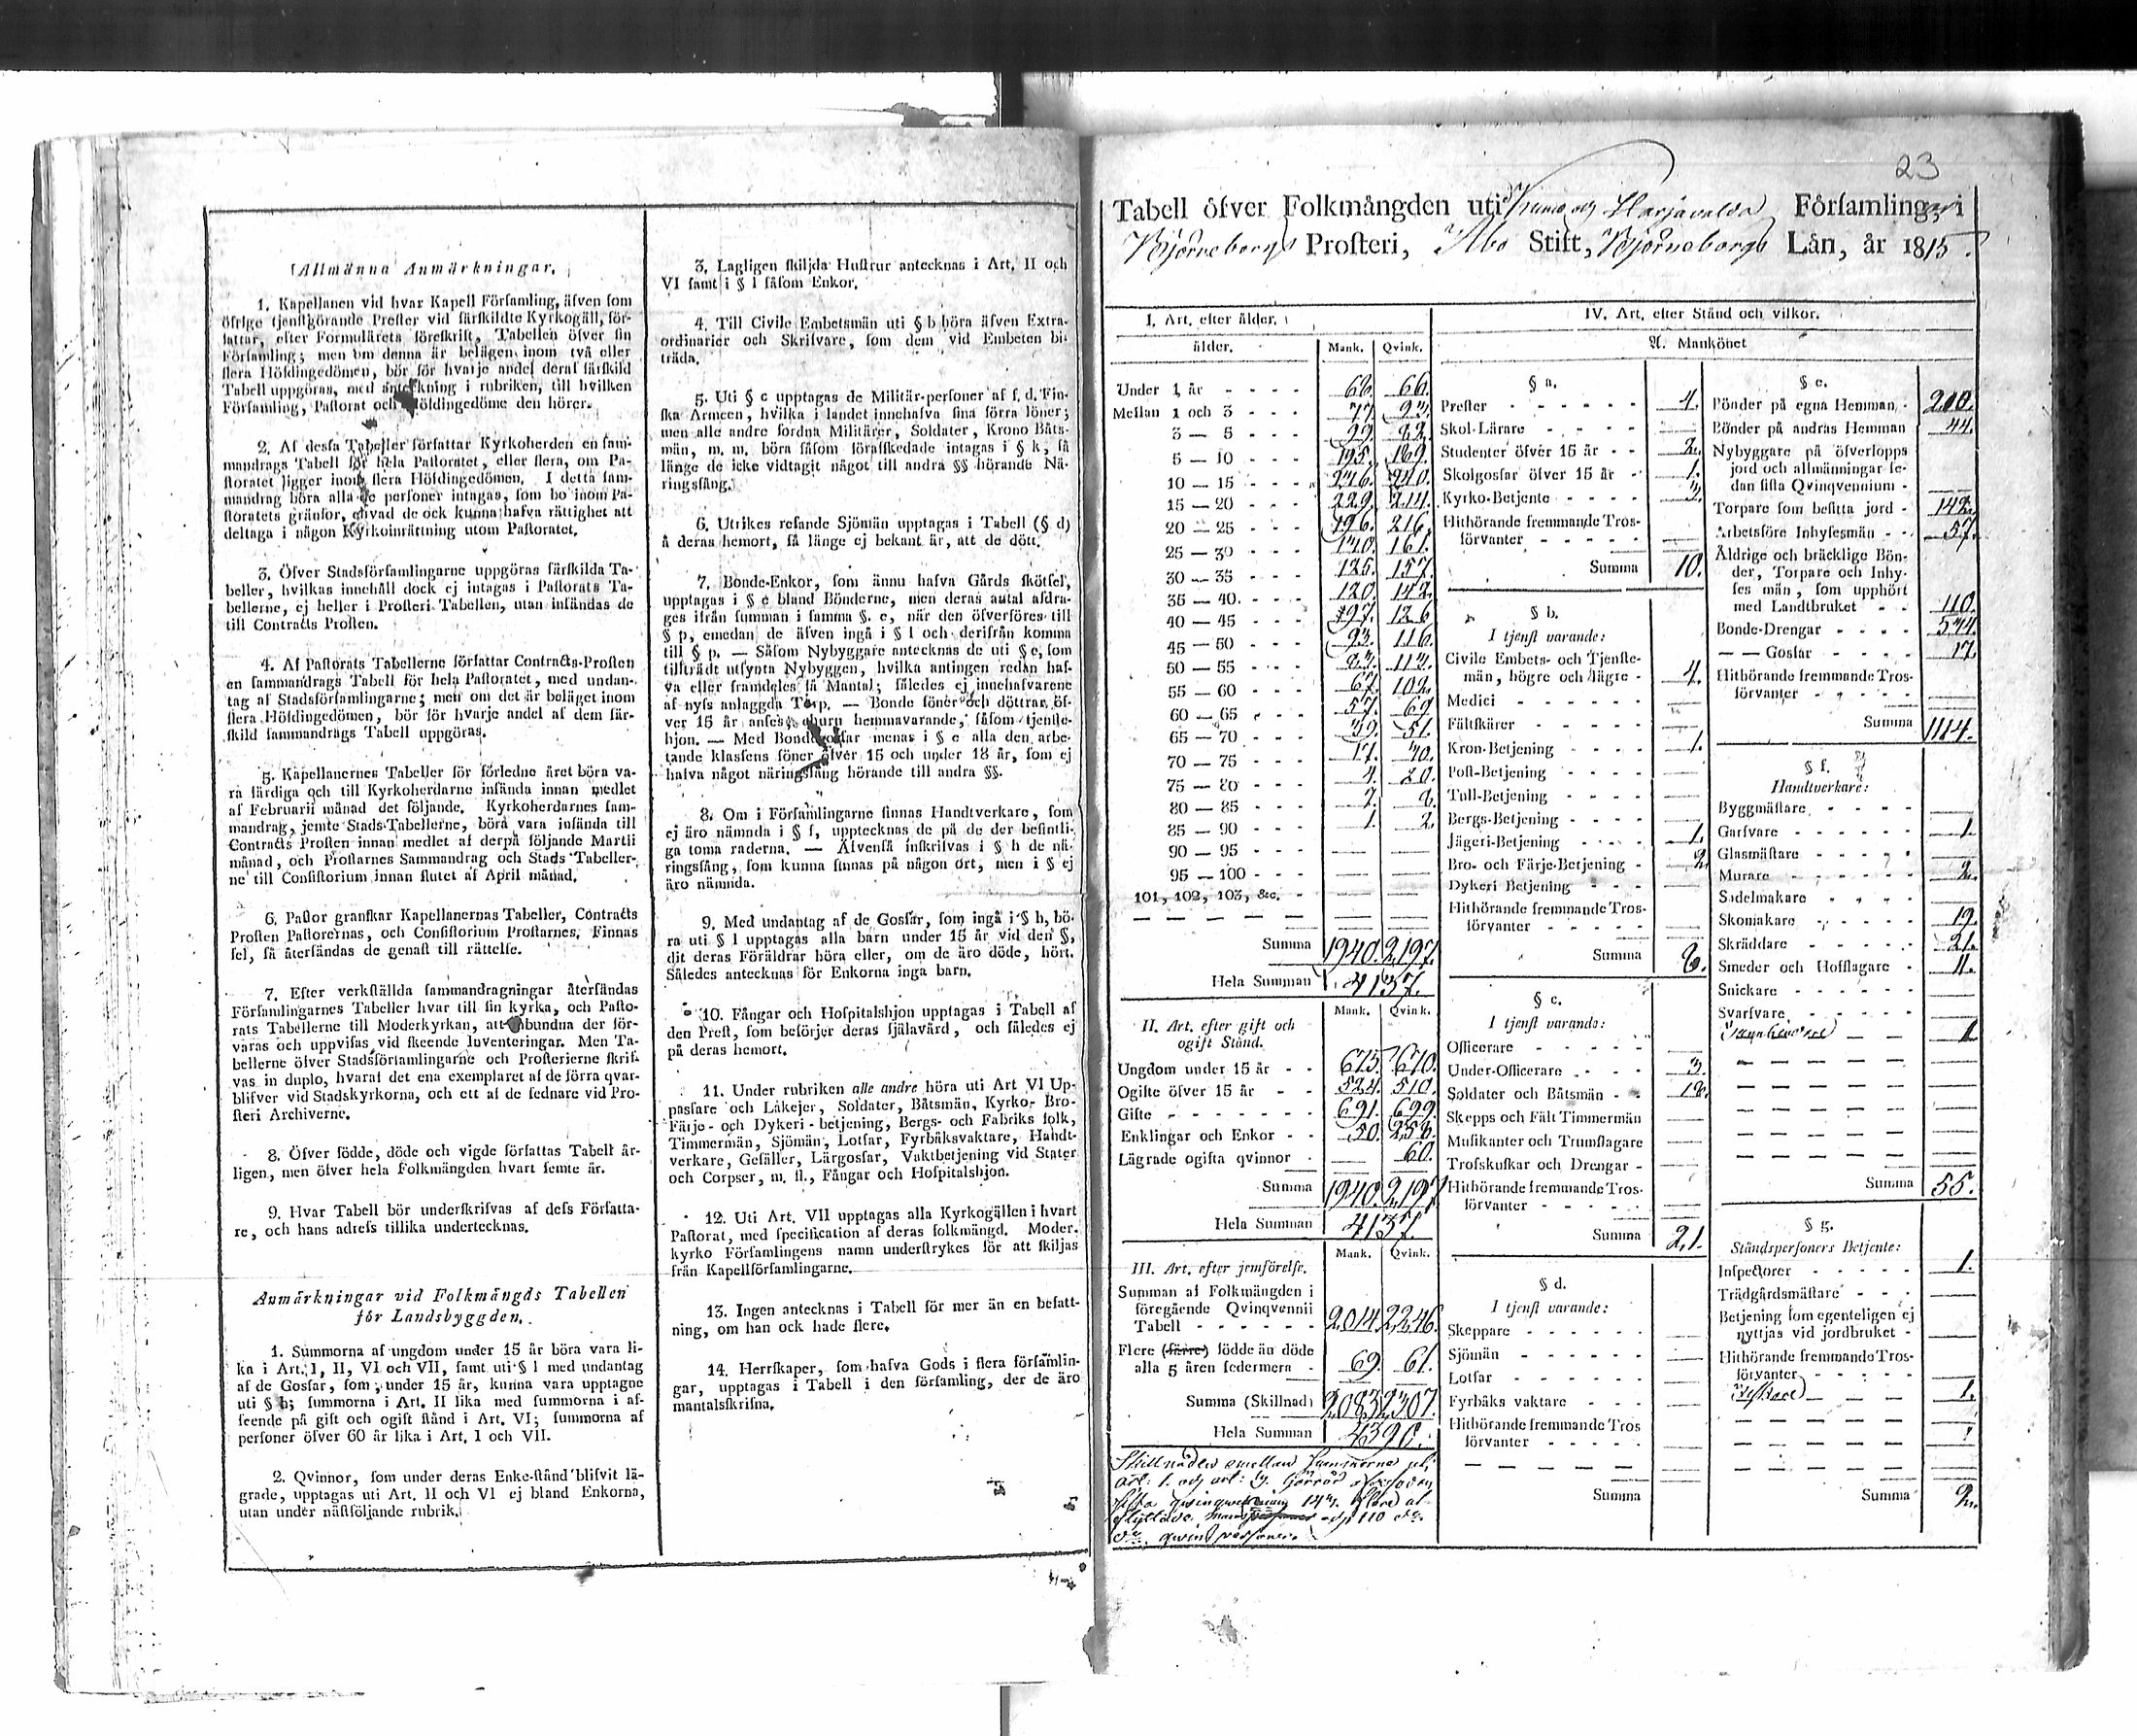 Allmänna Anmärkningar.
1. Kapellanen vid hvar Kapell Församling, äfven som
öfrige tjenstgörande Prester vid särskildte Kyrkogäll, för-
fattar, efter Formulärets föreskrift, Tabellen öfver sin
Församling; men om denna är belägen inom två eller
flera Höfdingedömen, bör för hvarje andel deraf särskild
Tabell uppgöras, med anteckning i rubriken, till hvilken
Församling, Pastorat och Höldingedöme den hörer.
2. Af dessa Tabeller författar Kyrkoherden en sam-
mandrags Tabell för hela Pastoratet, eller flera, om Pa-
storatet ligger inom flera Höfdingedömen. I detta sam-
mandrag böra alla de personer intagas, som bo inom Pa-
storatets gränsor, ehvad de ock kunna hafva rättighet att
deltaga i någon Kyrkoinrättning utom Pastoratet.
3. Öfver Stadsförsamlingarne uppgöras särskilda Ta-
beller, hvilkas innehåll dock ej intagas i Pastorats Ta-
bellerne, ej heller i Prosteri Tabellen, utan insändas de
till Contracts Prosten.
4. Af Pastorats Tabellerne författar Contracts-Prosten
en sammandrags Tabell för hela Pastoratet, med undan-
tag af Stadsförsamlingarne; men om det är beläget inom
flera Höfdingedömen, bör för hvarje andel af dem sär-
skild sammandrags Tabell uppgöras.
5. Kapellanernes Tabeller för förledne året böra va-
ra färdiga och till Kyrkoherdarne insända innan medlet
af Februarii månad det följande. Kyrkoherdarnes sam-
mandrag, jemte Stads-Tabellerne, böra vara insända till
Contracts Prosten innan medlet af derpå följande Martii
månad, och Prostarnes Sammandrag och Stads Tabeller-
ne till Consistorium innan slutet af April månad.
6. Pastor granskar Kapellanernas Tabeller, Contracts
Prosten Pastorernas, och Consistorium Prostarnes. Finnas
fel, så återsändas de genast till rättelse.
7. Efter verkställda sammandragningar återsändas
Församlingarnes Tabeller hvar till sin kyrka, och Pasto-
rats Tabellerne till Moderkyrkan, att inbundna der för-
varas och uppvisas vid skeende Inventeringar. Men Ta-
bellerne öfver Stadsförsamlingarne och Prosterierne skrif-
vas in duplo, hvaraf det ena exemplaret af de förra qvar-
blifver vid Stadskyrkorna, och ett af de sednare vid Pro-
steri Archiverne.
8. Öfver födde, döde och vigde författas Tabell år-
ligen, men öfver hela folkmängden hvart femte år.
9. Hvar Tabell bör underskrifvas af dess Författa-
re, och hans adress tillika undertecknas.
Anmärkningar vid Folkmängds Tabellen
för Landsbyggden.
1. Summorna af ungdom under 15 år böra vara li-
ka i Art. I, II, VI och VII, samt uti § l med undantag
af de Gossar, som, under 15 år, kunna vara upptagne
uti § h; summorna i Art. II lika med summorna i af-
seende på gift och ogift stånd i Art. VI; summorna af
personer öfver 60 år lika i Art. I och VII.
2. Qvinnor, som under deras Enke-stånd blifvit lä-
grade, upptagas uti Art. II och VI ej bland Enkorna,
utan under nästföljande rubrik.
3. Lagligen skiljda Hustrur antecknas i Art. II och
VI samt i § l såsom Enkor.
4. Till Civile Embetsmän uti § b höra äfven Extra-
ordinarier och Skrifvare, som dem vid Embeten bi-
träda.
5. Uti § c upptagas de Militär-personer af f. d. Fin-
ska Armeen, hvilka i landet innehafva sina förra löner;
men alle andre fordna Militärer, Soldater, Krono Båts-
män, m. m. böra såsom förafskedade intagas i § k, så
länge de icke vidtagit något till andra §§ hörande Nä-
ringsfång.
6. Utrikes resande Sjömän upptagas i Tabell (§ d)
å deras hemort, så länge ej bekant är, att de dött.
7. Bonde-Enkor, som ännu hafva Gårds skötsel,
upptagas i § e bland Bönderne, men deras antal afdra-
ges ifrån summan i samma §. e, när den öfverföres till
§ p, emedan de äfven ingå i § l och derifrån komma
till § p. — Såsom Nybyggare antecknas de uti § e, som
tillträdt utsynta Nybyggen, hvilka antingen redan haf-
va eller framdeles få Mantal; således ej innehafvarene
af nyss anlaggda Torp. — Bonde söner och döttrar, öf-
ver 15 år anses, ehuru hemmavarande, såsom tjenste-
hjon. — Med Bondegossar menas i § e alla den arbe-
tande klassens söner öfver 15 och under 18 år, som ej
hafva något näringsfång hörande till andra §§.
8. Om i Församlingarne finnas Handtverkare, som
ej äro nämnda i § f, upptecknas de på de der befintli-
ga toma raderna. — Älvenså inskrifvas i § h de nä-
ringsfång, som kunna finnas på någon ort, men i § ej
äro nämnda.
9. Med undantag af de Gossar, som ingå i § h, bö-
ra uti § l upptagas alla barn under 15 år vid den §,
dit deras Föräldrar höra eller, om de äro döde, hört.
Således antecknas för Enkorna inga barn.
10. Fångar och Hospitalshjon upptagas i Tabell af
den Prest, som besörjer deras själavård, och således ej
på deras hemort.
11. Under rubriken alle andre höra uti Art VI Up-
passare och Låkejer, Soldater, Båtsmän, Kyrko- Bro-
Färje- och Dykeri-betjening, Bergs- och Fabriks folk,
Timmermän, Sjömän, Lotsar, Fyrbåksvaktare, Handt-
verkare, Gesäller, Lärgossar, Vaktbetjening vid Stater
och Corpser, m. fl., Fångar och Hospitalshjon.
12. Uti Art. VII upptagas alla Kyrkogällen i hvart
Pastorat, med specification af deras folkmängd. Moder-
kyrko Församlingens namn understrykes för att skiljas
från Kapellförsamlingarne.
13. Ingen antecknas i Tabell för mer än en befatt-
ning, om han ock hade flere.
14. Herrskaper, som hafva Gods i flera församlin-
gar, upptagas i Tabell i den församling, der de äro
mantalsskrifna.
23
Tabell öfver Folkmängden uti Kumo och Harjavalda Församlingar i
Björneborgs Prosteri, Åbo Stift, Björneborgs Län, år 1815.
I. Art, efter ålder.
ålder. Mank. Qvink.
Under 1 år 66. 66.
Mellan 1 och 3
3 — 5
5 — 10 195. 169.
10 — 15 240.
15 — 20 229. 211.
20 — 25 196. 216.
25 — 30 140. 161.
30 — 35 126. 157.
35 — 40. 120. 142.
40 — 45 126
45 — 50 93. 116.
50 — 55 113.
55 — 60 67. 102.
60 — 65 57. 69
65 — 70 39. 51.
70 — 75 17. 40.
75 — 80 4. 20.
80 — 85
85 — 90 1. 2.
90 — 95
95 — 100
101, 102, 103, &c.
Summa 1940. 2197.
Hela Summan 4137.
II. Art. efter gift och
ogift Stånd.
Mank. Qvink.
Ungdom under 15 år 675. 670.
Ogifte öfver 15 år 524. 510.
Gifte 691. 699.
Enklingar och Enkor 50. 258.
Lägrade ogifta qvinnor 60.
Summa 1940. 2197
Hela Summan 4137.
Mank. Qvink.
III. Art. efter jemförelse.
Summan af Folkmängden i
föregående Qvinqvennii
Tabell 2014. 2246.
Flere (färre) födde än döde
alla 5 åren sedermera 69. 61.
Summa (Skillnad) 2083. 2307.
Hela Summan 4390.
Skillnaden emellan Summorna uti
art: 1. och art: 3.
sista
110
qwinspersoner.
IV. Art. efter Stånd och vilkor.
A. Mankönet
§ a.
Prester 4.
Skol-Lärare
Studenter öfver 15 år 2.
Skolgossar öfver 15 år 1.
Kyrko-Betjente 3.
Hithörande fremmande Tros-
förvanter
Summa 10.
§ b.
I tjenst varande:
Civile Embets- och Tjenste-
män, högre och lägre 4.
Medici
Fältskärer
Kron-Betjening 1.
Post-Betjening
Tull-Betjening
Bergs-Betjening
Jägeri-Betjening 1.
Bro- och Färje-Betjening 2.
Dykeri Betjening
Hithörande fremmande Tros-
förvanter
Summa 8.
§ c.
I tjenst varande:
Officerare
Under-Officerare 3.
Soldater och Båtsmän 18.
Skepps och Fält Timmermän
Musikanter och Trumslagare
Trosskuskar och Drengar
Hithörande fremmande Tros-
förvanter
Summa 21.
§ d.
I tjenst varande:
Skeppare
Sjömän
Lotsar
Fyrbåks vaktare
Hithörande fremmande Tros
förvanter
Summa
§ e.
Bönder på egna Hemman 210.
Bönder på andras Hemman 44.
Nybyggare på öfverlopps
jord och allmänningar se-
dan sista Qvinqvennium
Torpare som besitta jord 142.
Arbetsföre Inhysesmän 57.
Äldrige och bräcklige Bön-
der, Torpare och Inhy-
ses män, som upphört
med Landtbruket 110.
Bonde-Drengar 534.
— — Gossar 17.
Hithörande fremmande Tros-
förvanter
Summa 1114.
§ f.
Handtverkare:
Byggmästare
Garfvare 1.
Glasmästare
Murare 2.
Sadelmakare
Skomakare 19.
Skräddare 21.
Smeder och Hofslagare 11.
Snickare
Svarfvare
1
Summa 55.
§ g.
Ståndspersoners Betjente:
Inspectorer 1.
Trädgårdsmästare
Betjening som egenteligen ej
nyttjas vid jordbruket
Hithörande fremmande Tros-
förvanter
1.
Summa 2.